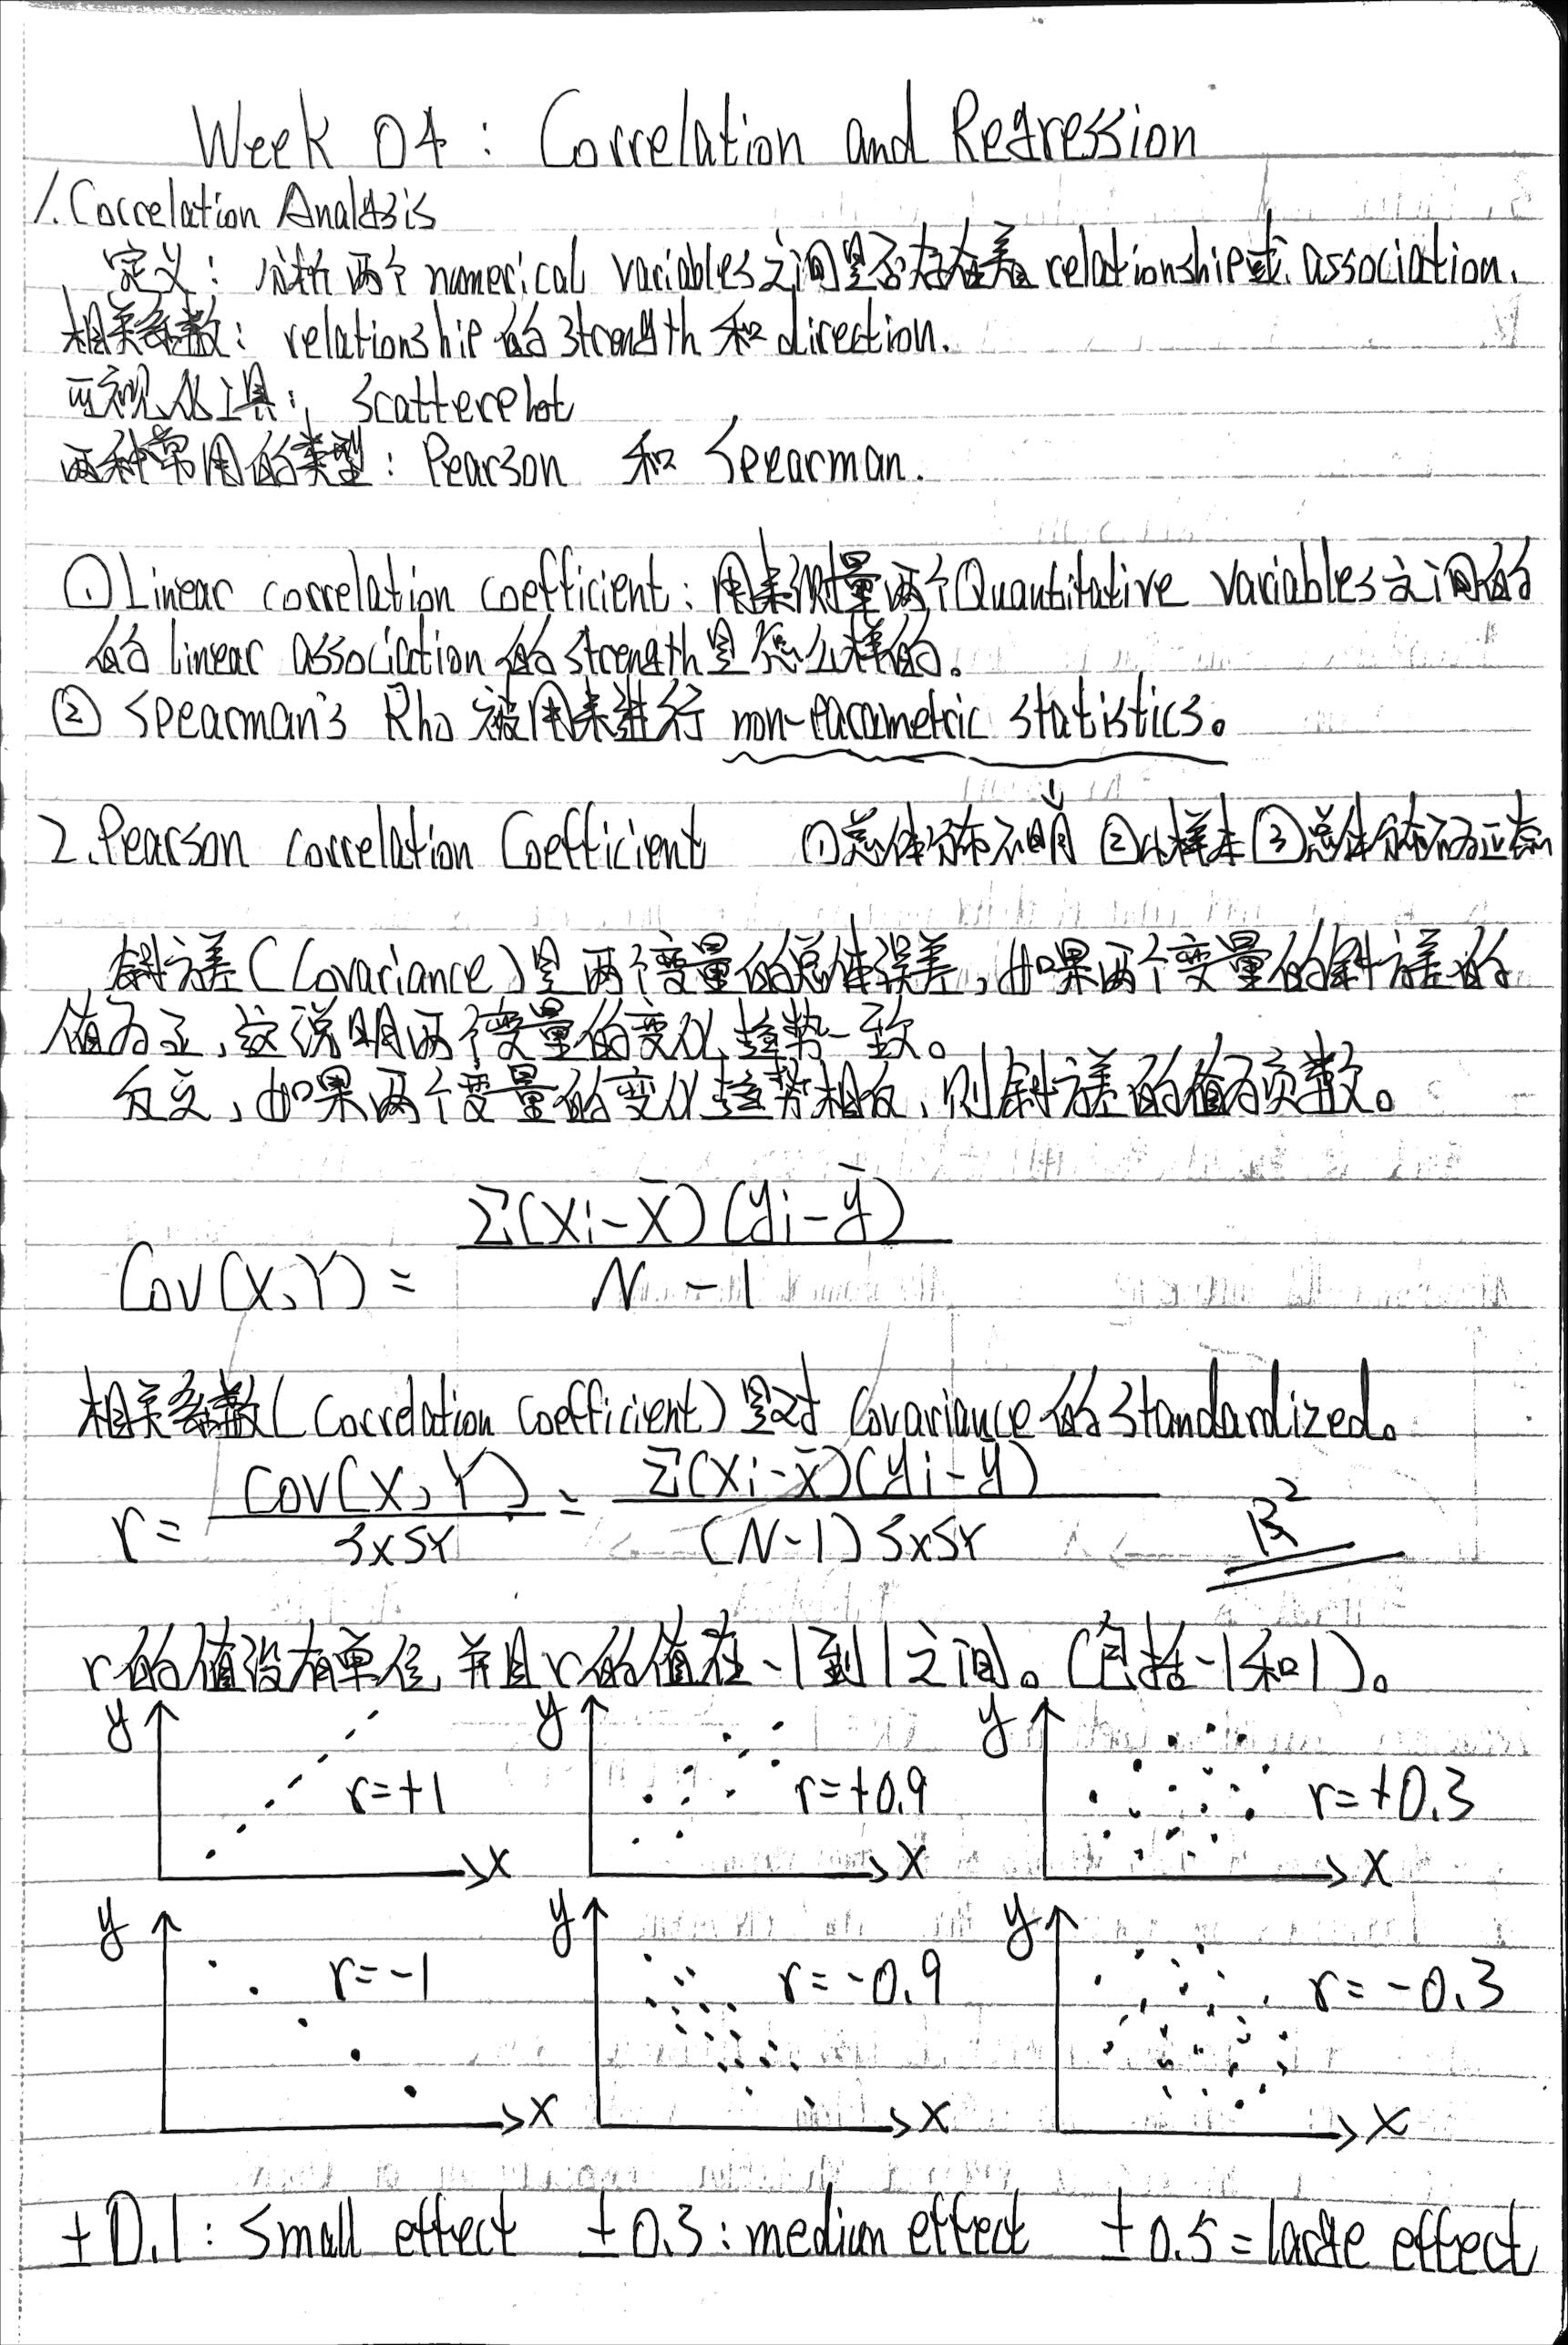 Week 04: Correlation and Regression
1. Correlation Analysis
定义：分析两个 numerical variables之间是否存在着relationship或association.
相关系数：relationship的strength和direction.
可视化工具：Scatterplot
两种常用的类型：Pearson 和 Spearman.
①Linear correlation coefficient：用来测量两个Quantitative variables之间的
的linear association的strength是怎么样的。
② Spearman's Rho 被用来进行 non-parametric statistics。
↓
2. Pearson correlation Coefficient ①总体分布不明 ②小样本 ③总体分布不为正态
斜方差(Covariance)是两个变量的总体误差，如果两个变量的斜方差的
值为正，这说明两个变量的变化趋势一致。
反之，如果两个变量的变化趋势相反，则斜方差的值为负数。
Cov(X,Y) = Σ(Xi-x̄)(yi-ȳ) / N-1
相关系数(Correlation Coefficient)是对Covariance的Standardized。
r = Cov(X,Y) / SxSY = Σ(Xi-x̄)(yi-ȳ) / (N-1)SxSY R²
r的值没有单位，并且r的值在-1到1之间。(包括-1和1)。
y r=+1 x y r=+0.9 x y r=+0.3 x
y r=-1 x y r=-0.9 x y r=-0.3 x
±0.1: Small effect ±0.3: medium effect ±0.5=large effect